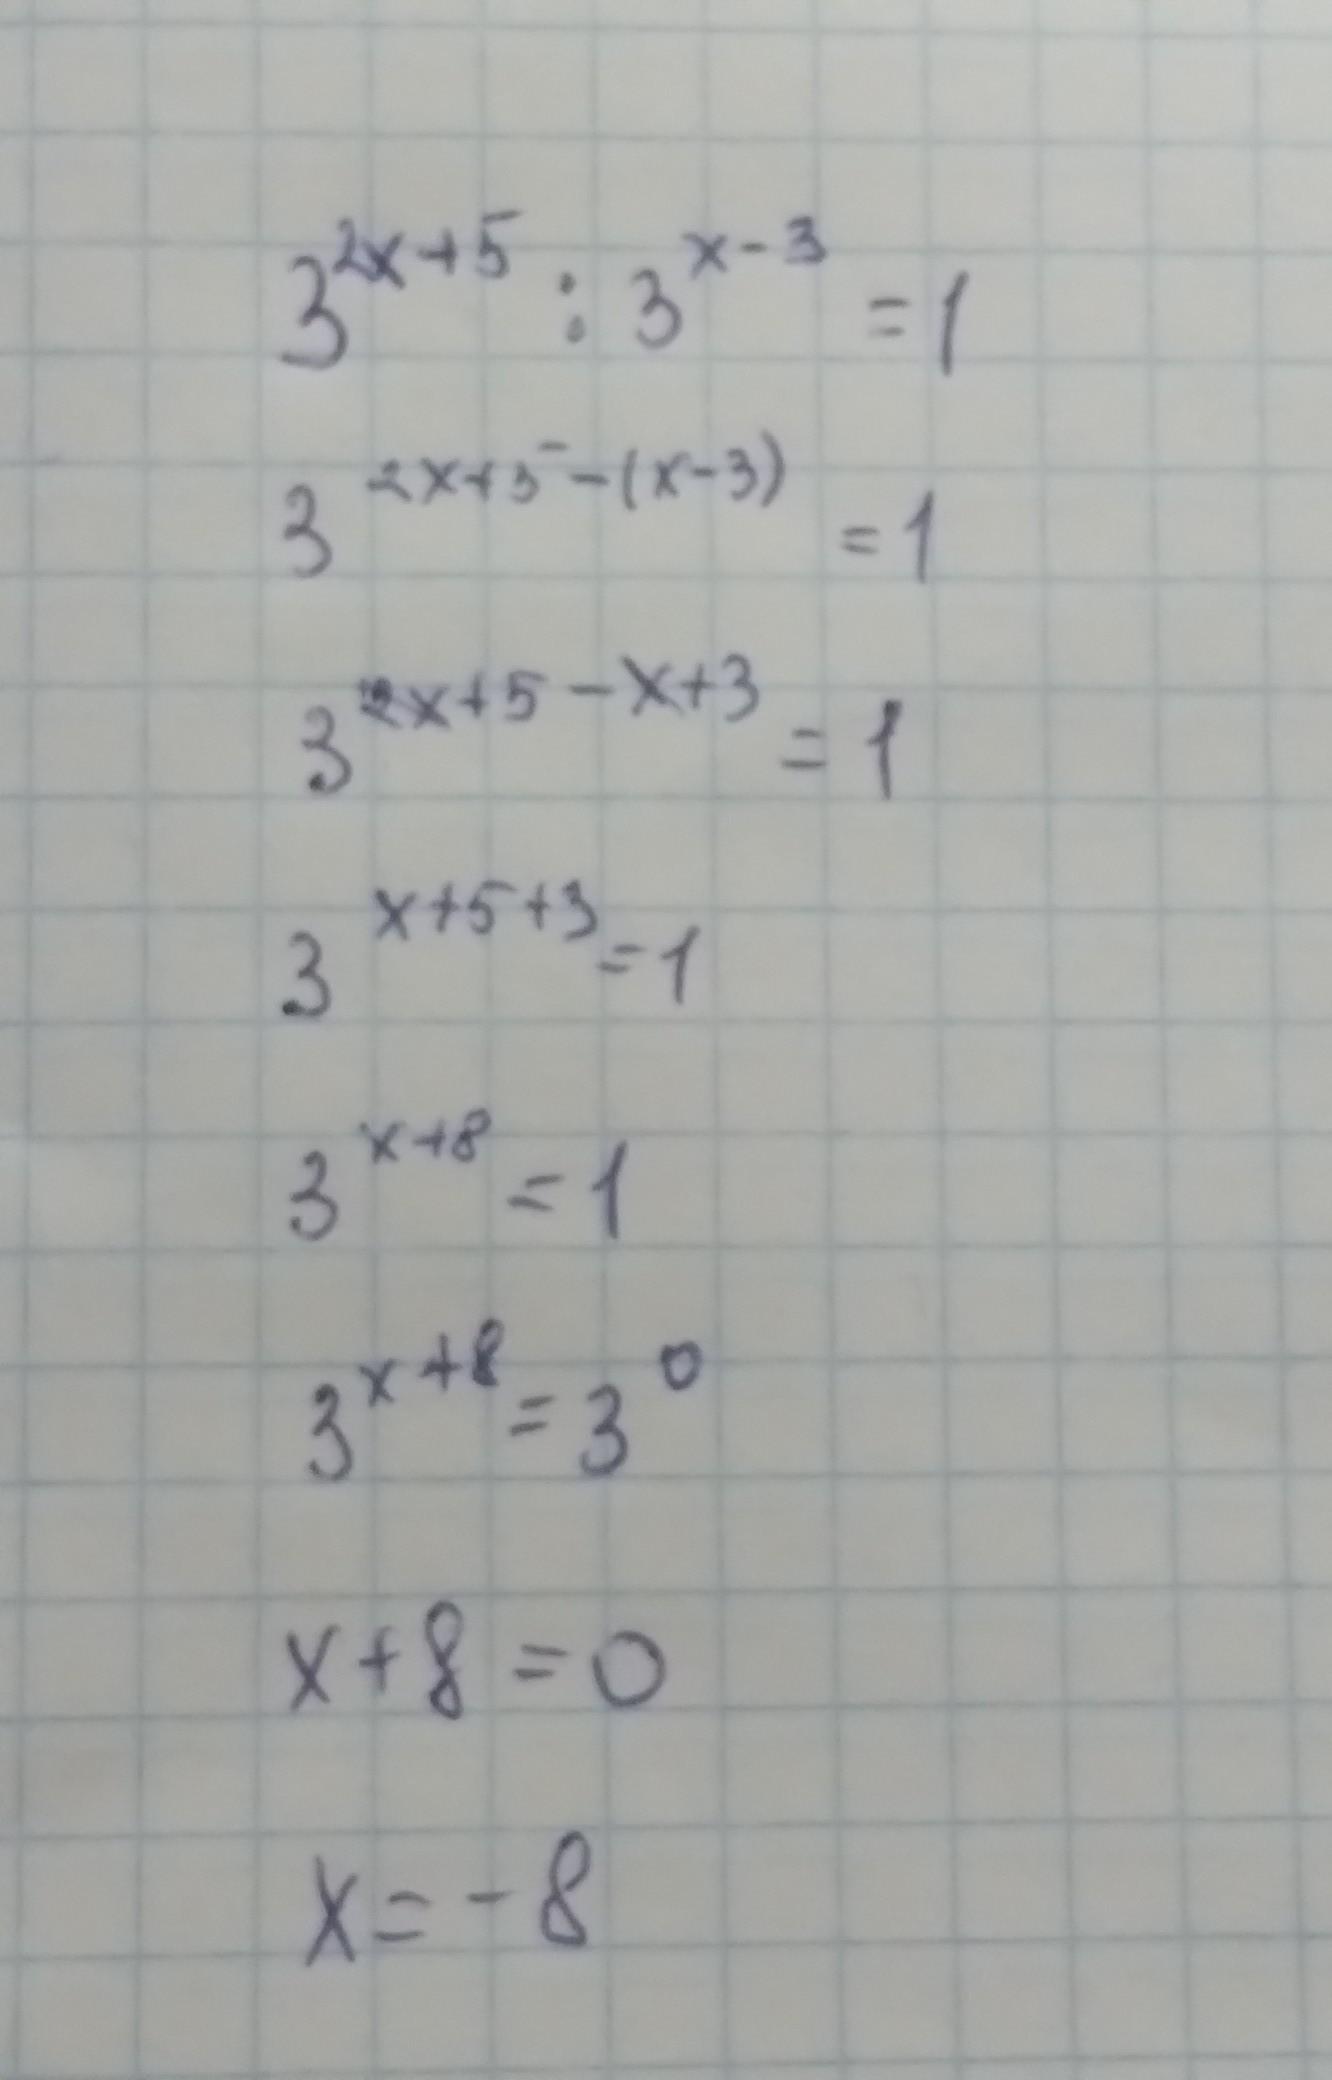 3^{2x+5} : 3^{x-3} = 1
3^{2x+5-(x-3)} = 1
3^{2x+5-x+3} = 1
3^{x+5+3} = 1
3^{x+8} = 1
3^{x+8} = 3^{0}
x+8=0
x=-8